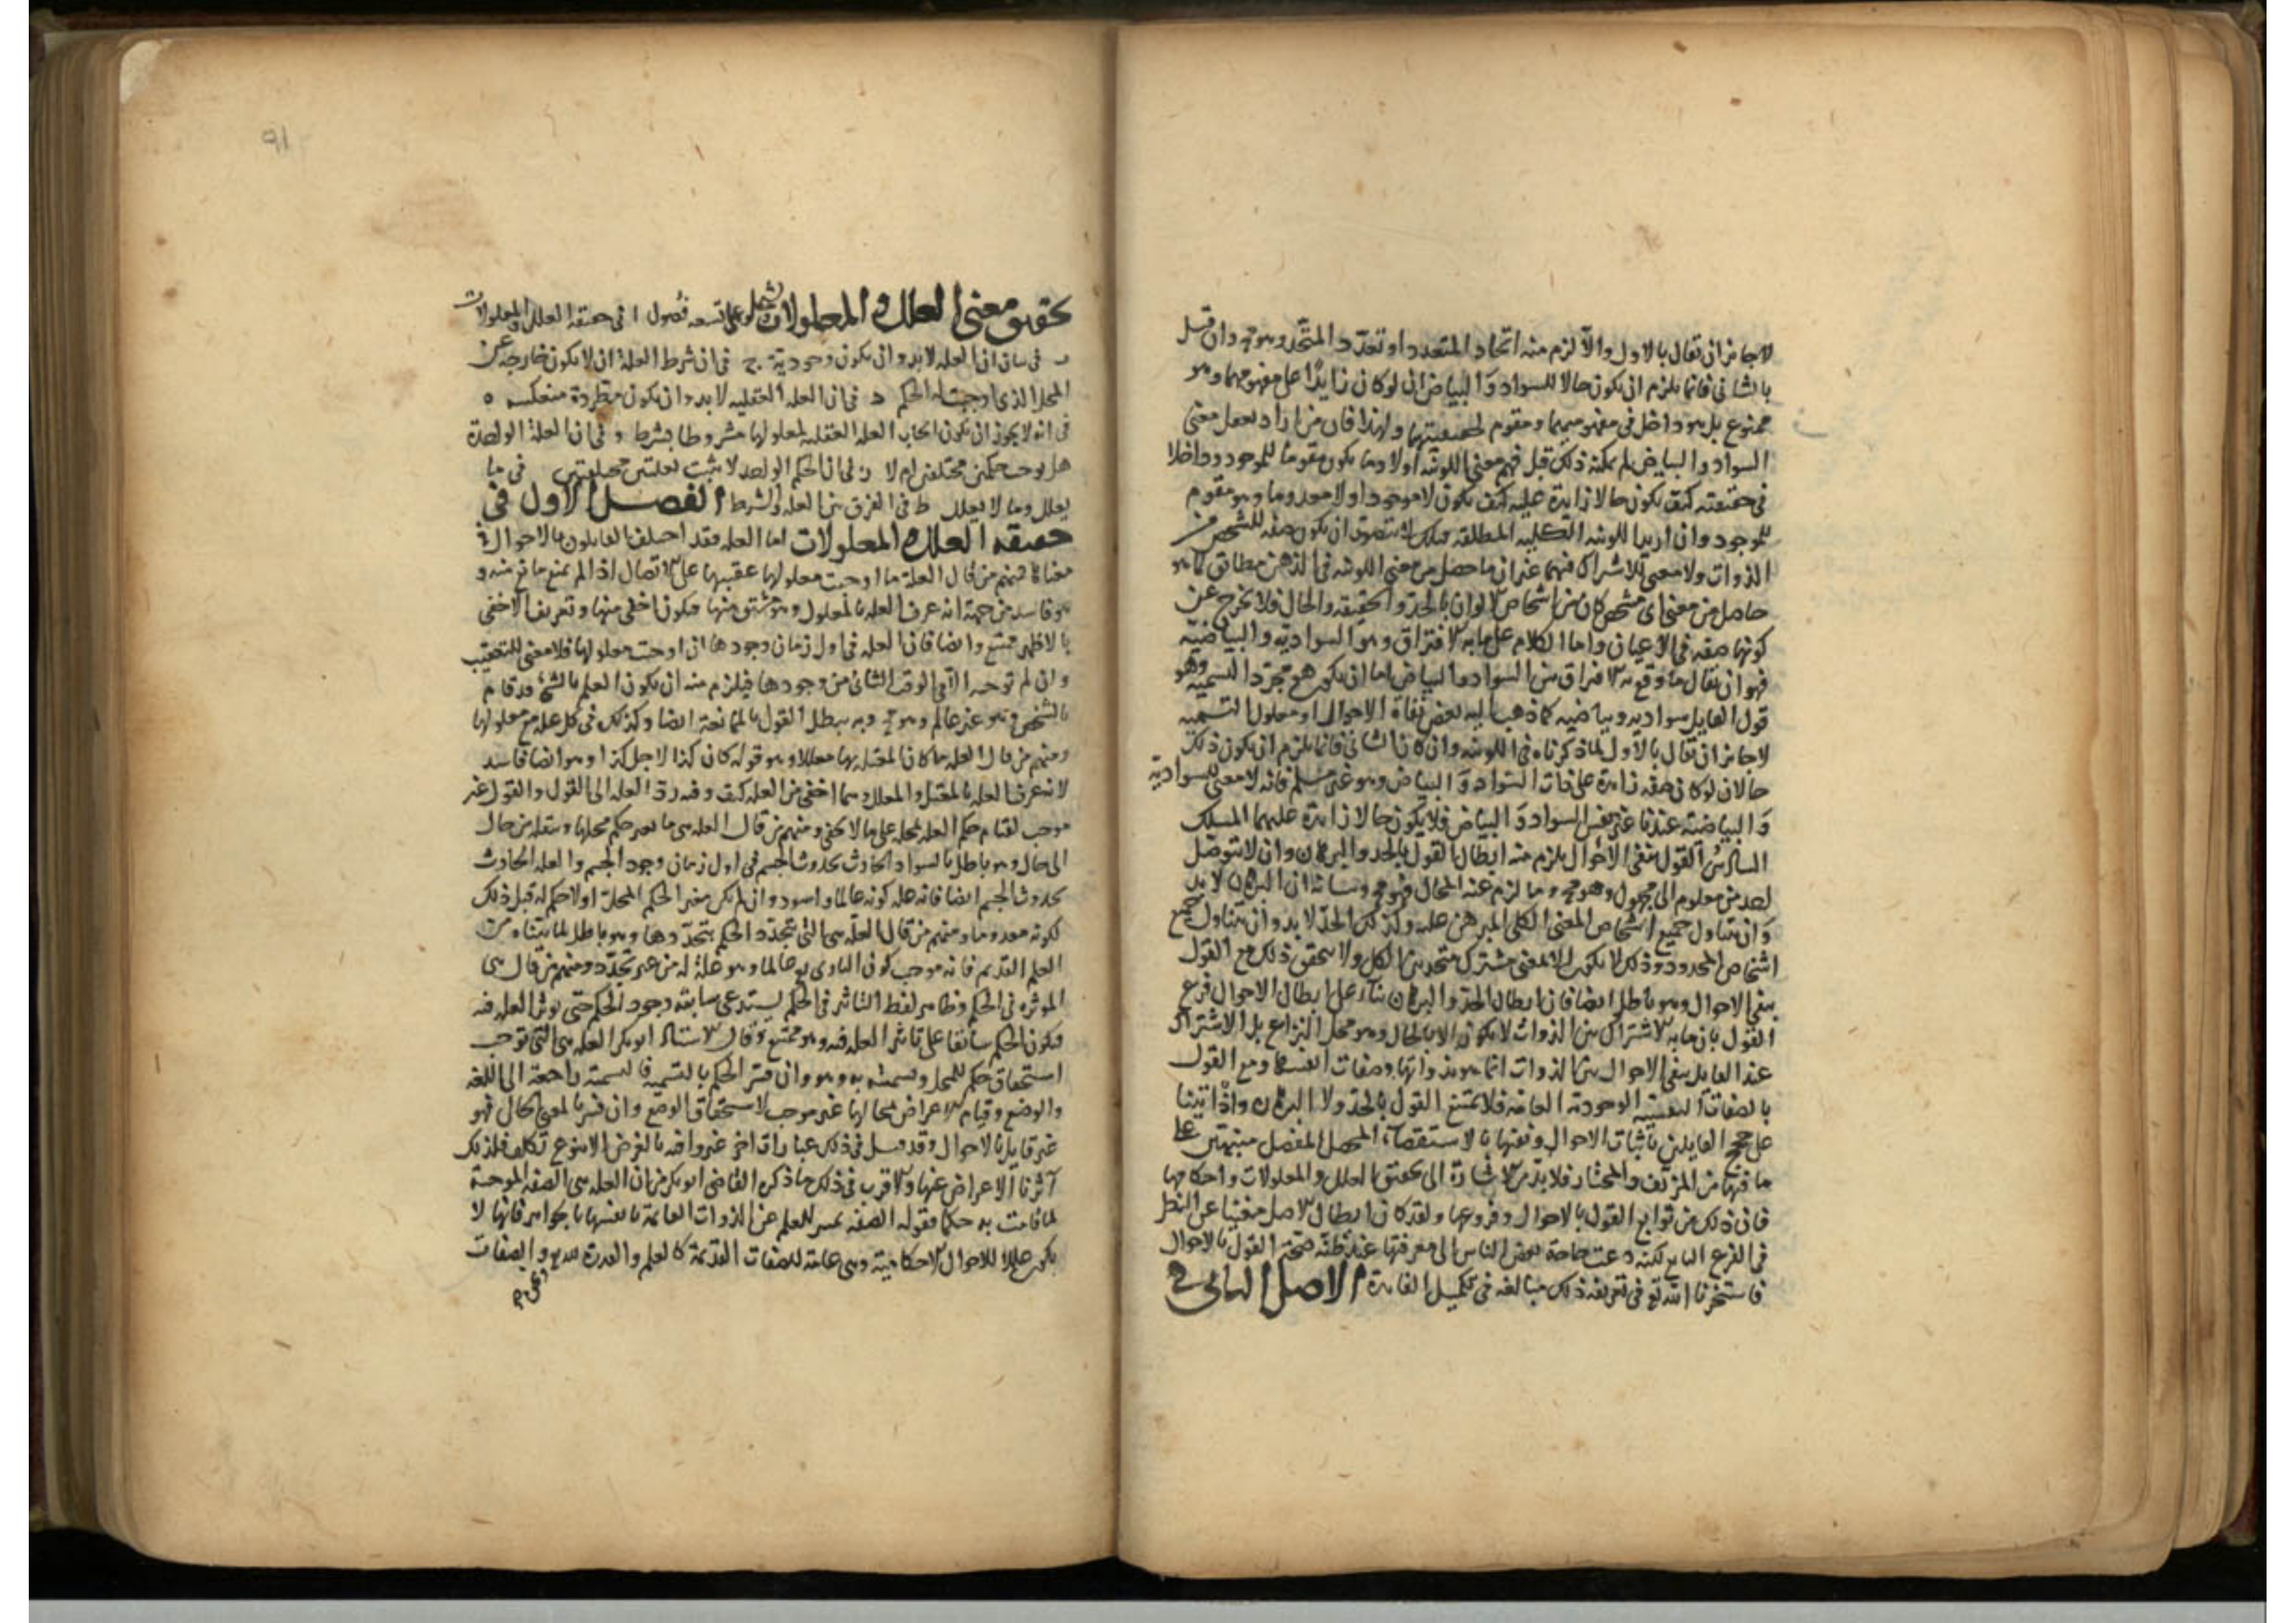 لا جائز ان يقال بالاول والا لزم منه اتحاد المتعدد او تعدد المتحد وهو مح وان قيل
بالثانى فانما يلزم ان يكون حالا للسواد والبياض ان لو كان زايدا على مفهومهما وهو
ممنوع بل هو داخل فى مفهوميهما ومقوم لحقيقتيهما ولهذا فان من اراد تعقل معنى
السواد والبياض لم يمكنه ذلك قبل فهم معنى اللونيه اولا وما يكون مقوما للموجود وداخلا
فى حقيقته كيف يكون حالا زايدة عليه كيف يكون لا موجودا ولا معدوما وهو مقوم
للموجود وان اريد باللونيه الكليه المطلقه فتلك لا يتصور ان يكون صفه للشخص من
الذوات ولا معنى للاشتراك فيها غير ان ما حصل من معنى اللونيه فى الذهن مطابق لما هو
حاصل من معنى اى شخص كان من اشخاص الالوان بالحد والحقيقه والحال فلا يخرج عن
كونها صفه فى الاعيان واما الكلام على ما به الافتراق وهو السواديه والبياضيه
فهو ان يقال ما وقع به الافتراق بين السواد والبياض اما ان يكون هو مجرد التسميه وهو
قول القايل سواديه وبياضيه كما ذهب اليه بعض نفاة الاحوال او مدلول التسميه
لا جائز ان يقال بالاول لما ذكرناه فى اللونيه وان كان الثانى فانما يلزم ان يكون ذلك
حالا ان لو كان صفه زايدة على ذات السواد والبياض وهو غير مسلم فانه لا معنى للسواديه
والبياضيه عندنا غير نفس السواد والبياض فلا يكون حالا زايدة عليهما المسلك
السادس القول بنفى الاحوال يلزم منه ابطال القول بالحد والبرهان وان لا يتوصل
احد من معلوم الى مجهول وهو مح وما لزم عنه المحال فهو مح وبيانه ان البرهان لا بد
وان يتناول جميع اشخاص المعنى الكلى المبرهن عليه وكذلك الحد لا بد وان يتناول جميع
اشخاص المحدود وذلك لا يكون الا لمعنى مشترك متحد بين الكل ولا يتحقق ذلك مع القول
بنفى الاحوال وهو باطل ايضا فان ابطال الحد والبرهان بناء على ابطال الاحوال فرع
القول بان ما به الاشتراك بين الذوات لا يكون الا بالحال وهو محل النزاع بل الاشتراك
عند القايل بنفى الاحوال بين الذوات انما هو بذواتها وصفات انفسها ومع القول
بالصفات النفسيه الوجوديه العامه فلا يمتنع القول بالحد ولا البرهان واذ اتينا
على حجج القايلين باثبات الاحوال ونفيها بالاستقصاء المحصل المفصل منبهين على
ما فيها من المزيف والمختار فلا بد من الاشارة الى تحقيق العلل والمعلولات واحكامها
فان ذلك من توابع القول بالاحوال وفروعها ولقد كان ابطال الاصل مغنيا عن النظر
فى الفرع التابع لكنه دعت حاجة بعض الناس الى معرفتها عند ظنه صحة القول بالاحوال
فاستخرنا الله تع فى تعريفه ذلك مبالغه فى تكميل الفايدة الاصل الثانى فى
تحقيق معنى العلل والمعلولات ويشتمل على تسعه فصول ا فى حقيقه العلل والمعلولات
ب فى بيان ان العله لا بد وان يكون وجودية ج فى ان شرط العلة ان لا يكون خارجه عن
المحل الذى اوجبت له الحكم د فى ان العله العقليه لا بد وان يكون مطردة منعكسه ه
فى انه لا يجوز ان يكون ايجاب العله العقليه لمعلولها مشروطا بشرط و فى ان العلة الواحدة
هل يوجب حكمين مختلفين ام لا ز فى ان الحكم الواحد لا يثبت بعلتين مختلفتين فى ما
يعلل وما لا يعلل ط فى الفرق بين العله والشرط الفصل الاول فى
حقيقه العلل والمعلولات اما العله فقد اختلف القايلون بالاحوال فى
معناها فمنهم من قال العلة ما اوجبت معلولها عقيبها على الاتصال اذا لم يمنع مانع منه و
هو فاسد من جهة انه عرف العله بالمعلول وهو مشتق منها فيكون اخفى منها وتعريف الاخفى
بالاظهر ممتنع وايضا فان العله فى اول زمان وجودها ان اوجبت معلولها فلا معنى للتعقيب
وان لم توجبه الا فى الوقت الثانى من وجودها فيلزم منه ان يكون العلم بالشئ قد قام
بالشخص وهو غير عالم وهو مح وبه يبطل القول بالممانعة ايضا وكذلك فى كل عله مع معلولها
ومنهم من قال العله ما كان المعتل بها معللا وهو قوله كان كذا لاجل كذا وهو ايضا فاسد
لانه عرف العله بالمعتل والمعلل وهما اخفى من العله كيف وفيه رد العله الى القول والقول غير
موجب لقيام حكم العله بمحله على ما لا يخفى ومنهم من قال العله هى ما يغير حكم محلها وينقله من حال
الى حال وهو باطل بالسواد الحادث بحدوث الجسم فى اول زمان وجود الجسم والعله الحادث
بحدوث الجسم ايضا فانه عله كونه عالما واسود وان لم يكن مغير الحكم المحل اولا حكم له قبل ذلك
لكونه معدوما ومنهم من قال العله هى التى يتجدد الحكم بتجددها وهو باطل لما بيناه من
العلم القديم فانه موجب كون البارى تع عالما وهو علة له من غير تجدد ومنهم من قال هى
الموثره فى الحكم وظاهر لفظ التاثير فى الحكم يستدعى سابقه وجود الحكم حتى يوثر العله فيه
فيكون الحكم سابقا على تاثير العله فيه وهو ممتنع وقال الاستاذ ابو بكر العله هى التى توجب
استحقاق حكم للمحل وتسميته به وهو وان فسر الحكم بالتسميه فالتسمية راجعة الى اللغه
والوضع وقيام الاعراض بمحالها غير موجب لاستحقاق الوضع وان فسر بالمعنى الحال فهو
غير قايل بالاحوال وقد قيل فى ذلك عبارات اخر غير وافيه بالغرض الا بنوع تكلف فلذلك
آثرنا الاعراض عنها والاقرب فى ذلك ما ذكره القاضى ابو بكر من ان العله هى الصفه الموجبة
لما قامت به حكما فقوله الصفه تمييز للعلم عن الذوات القايمة بانفسها بالجواهر فانها لا
يكون عللا للاحوال الاحكاميه وهى عامة للصفات القديمة كالعلم والقدرة لله تع والصفات